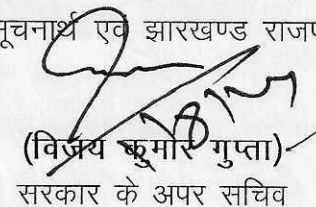 सूचनार्थ एवं झारखण्ड राजप
(विजय कुमार गुप्ता)
सरकार के अपर सचिव